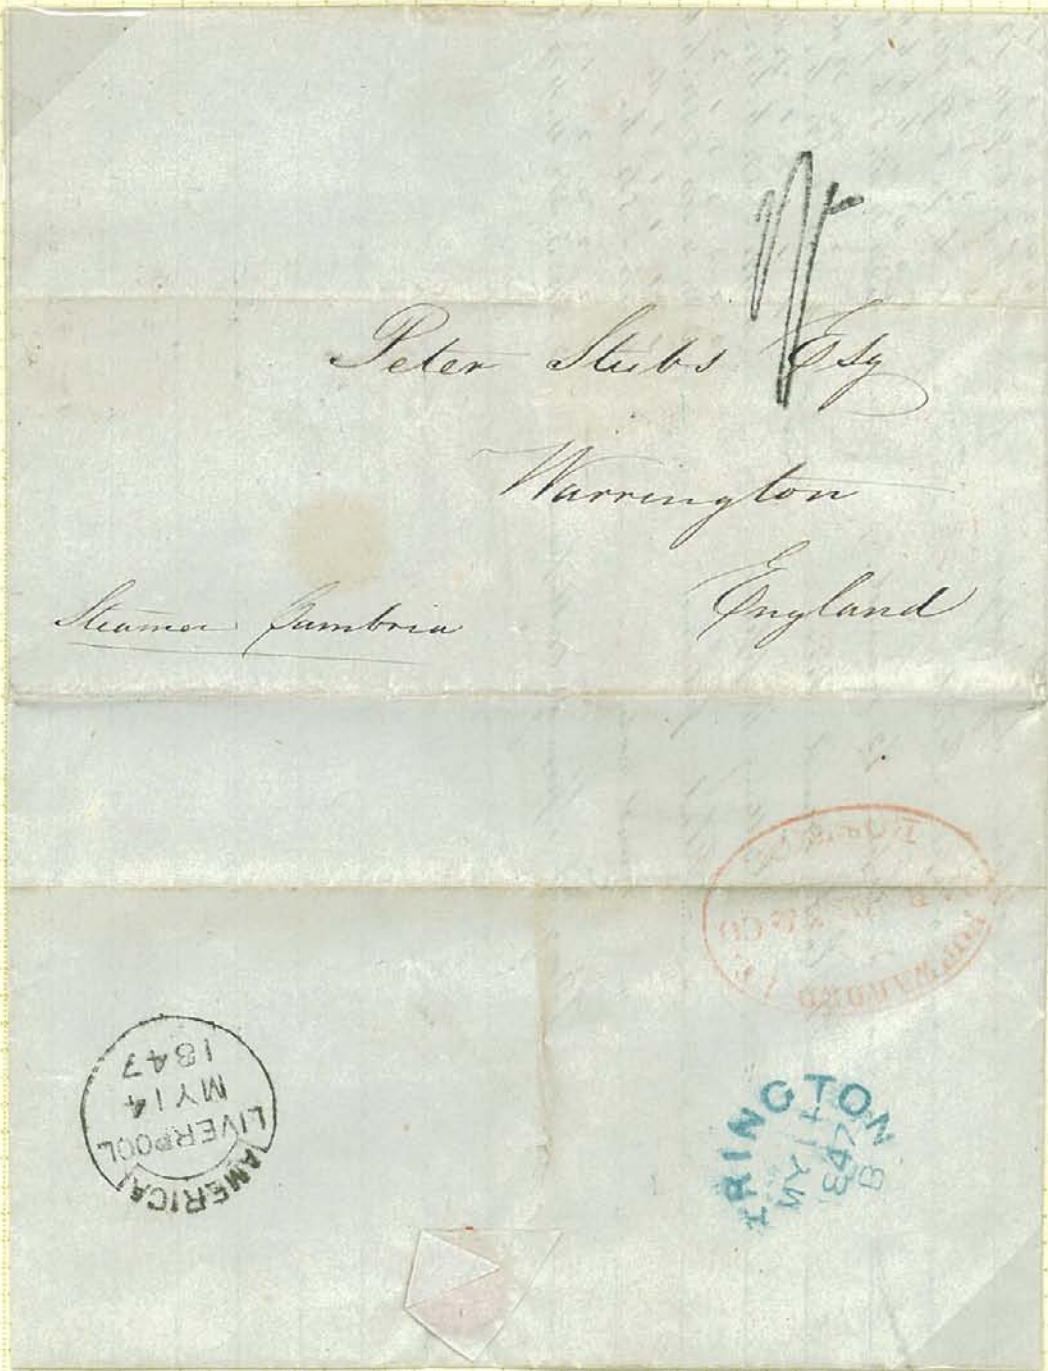 Peter Stubs Esq
Warrington
England
Steamer Cambria
AMERICA
LIVERPOOL
MY 14
1847
RRINGTON
MY 14
1847
B
& CO